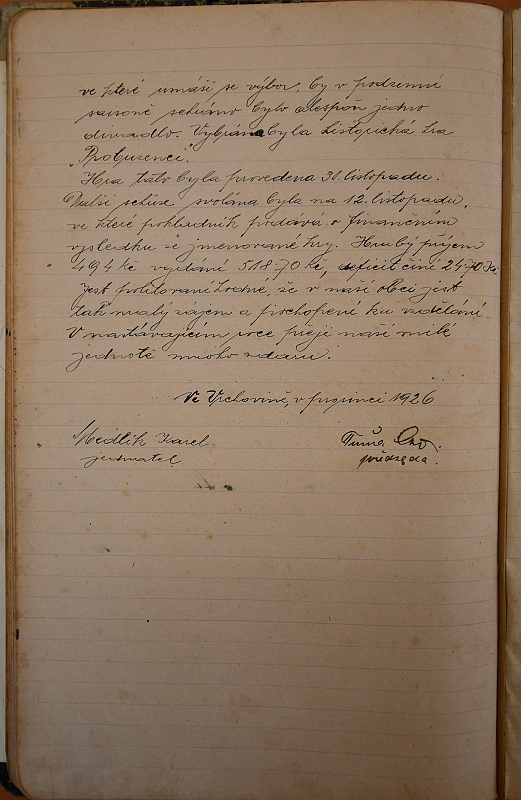 ve které usnáší se výbor, by v podzimní
saisoně sehráno bylo alespoň jedno
divadlo. Vybrána byla historická hra
"Probuzenci".
Hra tato byla provedena 31. listopadu.
Další schůze svolána byla na 12. listopadu,
ve které pokladník podává o finančním
výsledku ze jmenované hry. Hrubý příjem
494 Kč vydání 518·70 Kč, deficit činí 24·70 Kč
Jest politování hodné, že v naší obci jest
tak malý zájem a pochopení ku vzdělání.
V nastávajícím roce přeji naší milé
jednotě mnoho zdaru.
Ve Vrchovině, v prosinci 1926
Medlík Karel. Tuma
jednatel. předseda.